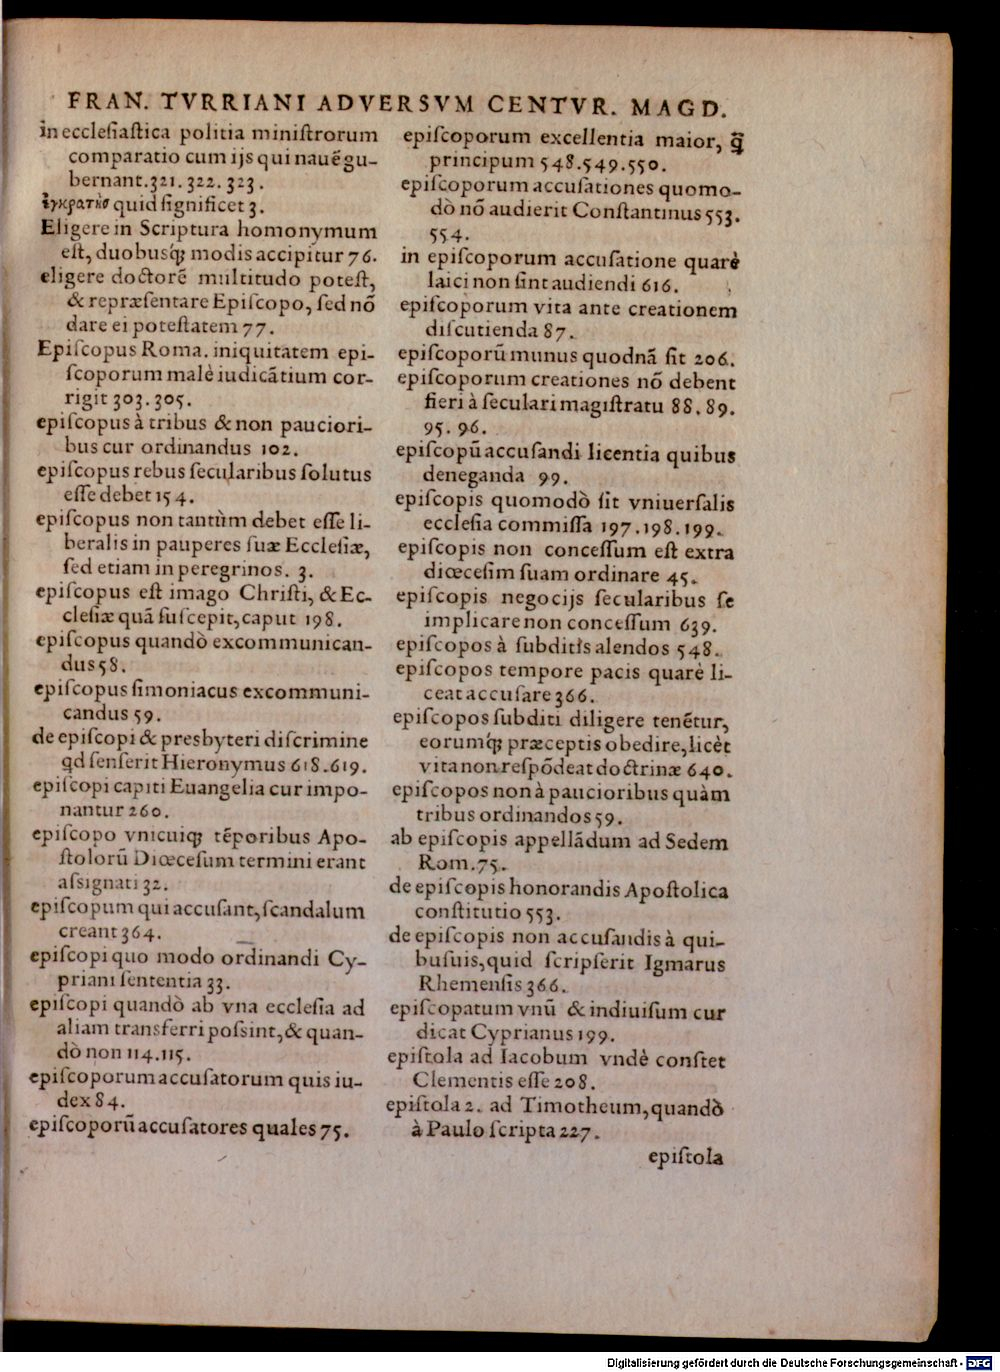 FRAN. TVRRIANI ADVERSVM CENTVR. MAGD.
in ecclesiaſtica politia miniſtrorum
comparatio cum ijs qui nauẽ gu-
bernant. 321. 322. 323.
quid ſignificet 3.
Eligere in Scriptura homonymum
eſt, duobusq́; modis accipitur 76.
eligere doctorẽ multitudo poteſt,
& repræſentare Epiſcopo, ſed nõ
dare ei poteſtatem 77.
Epiſcopus Roma. iniquitatem epi-
ſcoporum malè iudicãtium cor-
rigit 303. 305.
epiſcopus à tribus & non pauciori-
bus cur ordinandus 102.
epiſcopus rebus ſecularibus ſolutus
eſſe debet 154.
epiſcopus non tantùm debet eſſe li-
beralis in pauperes ſuæ Eccleſiæ,
ſed etiam in peregrinos. 3.
epiſcopus eſt imago Chriſti, & Ec-
cleſiæ quã ſuſcepit, caput 198.
epiſcopus quandò excommunican-
dus 58.
epiſcopus ſimoniacus excommuni-
candus 59.
de epiſcopi & presbyteri diſcrimine
qd ſenſerit Hieronymus 618. 619.
epiſcopi capiti Euangelia cur impo-
nantur 260.
epiſcopo vnicuiq; tẽporibus Apo-
ſtolorũ Diœceſum termini erant
aſsignati 32.
epiſcopum qui accuſant, ſcandalum
creant 364.
epiſcopi quo modo ordinandi Cy-
priani ſententia 33.
epiſcopi quandò ab vna eccleſia ad
aliam transferri poſsint, & quan-
dò non 114. 115.
epiſcoporum accuſatorum quis iu-
dex 84.
epiſcoporũ accuſatores quales 75.
epiſcoporum excellentia maior, q̃
principum 548. 549. 550.
epiſcoporum accuſationes quomo-
dò nõ audierit Conſtantinus 553.
554.
in epiſcoporum accuſatione quarè
laici non ſint audiendi 616.
epiſcoporum vita ante creationem
diſcutienda 87.
epiſcoporũ munus quodnã ſit 206.
epiſcoporum creationes nõ debent
fieri à ſeculari magiſtratu 88. 89.
95. 96.
epiſcopũ accuſandi licentia quibus
deneganda 99.
epiſcopis quomodò ſit vniuerſalis
eccleſia commiſſa 197. 198. 199.
epiſcopis non conceſſum eſt extra
diœceſim ſuam ordinare 45.
epiſcopis negocijs ſecularibus ſe
implicare non conceſſum 639.
epiſcopos à ſubditis alendos 548.
epiſcopos tempore pacis quarè li-
ceat accuſare 366.
epiſcopos ſubditi diligere tenẽtur,
eorumq́; præceptis obedire, licèt
vita non reſpõdeat doctrinæ 640.
epiſcopos non à paucioribus quàm
tribus ordinandos 59.
ab epiſcopis appellãdum ad Sedem
Rom. 75.
de epiſcopis honorandis Apoſtolica
conſtitutio 553.
de epiſcopis non accuſandis à qui-
buſuis, quid ſcripſerit Igmarus
Rhemenſis 366.
epiſcopatum vnũ & indiuiſum cur
dicat Cyprianus 199.
epiſtola ad Iacobum vndè conſtet
Clementis eſſe 208.
epiſtola 2. ad Timotheum, quandò
à Paulo ſcripta 227.
epiſtola
Digitalisierung gefördert durch die Deutsche Forschungsgemeinschaft - DFG